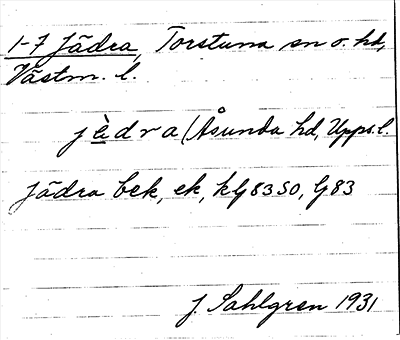 1-7 Jädra, Torstuna sn o. hd,
Västm. l.
jèdra (Åsunda hd, Upps.l.
Jädra bek, ek, kG 83 SO, G 83
J. Sahlgren 1931